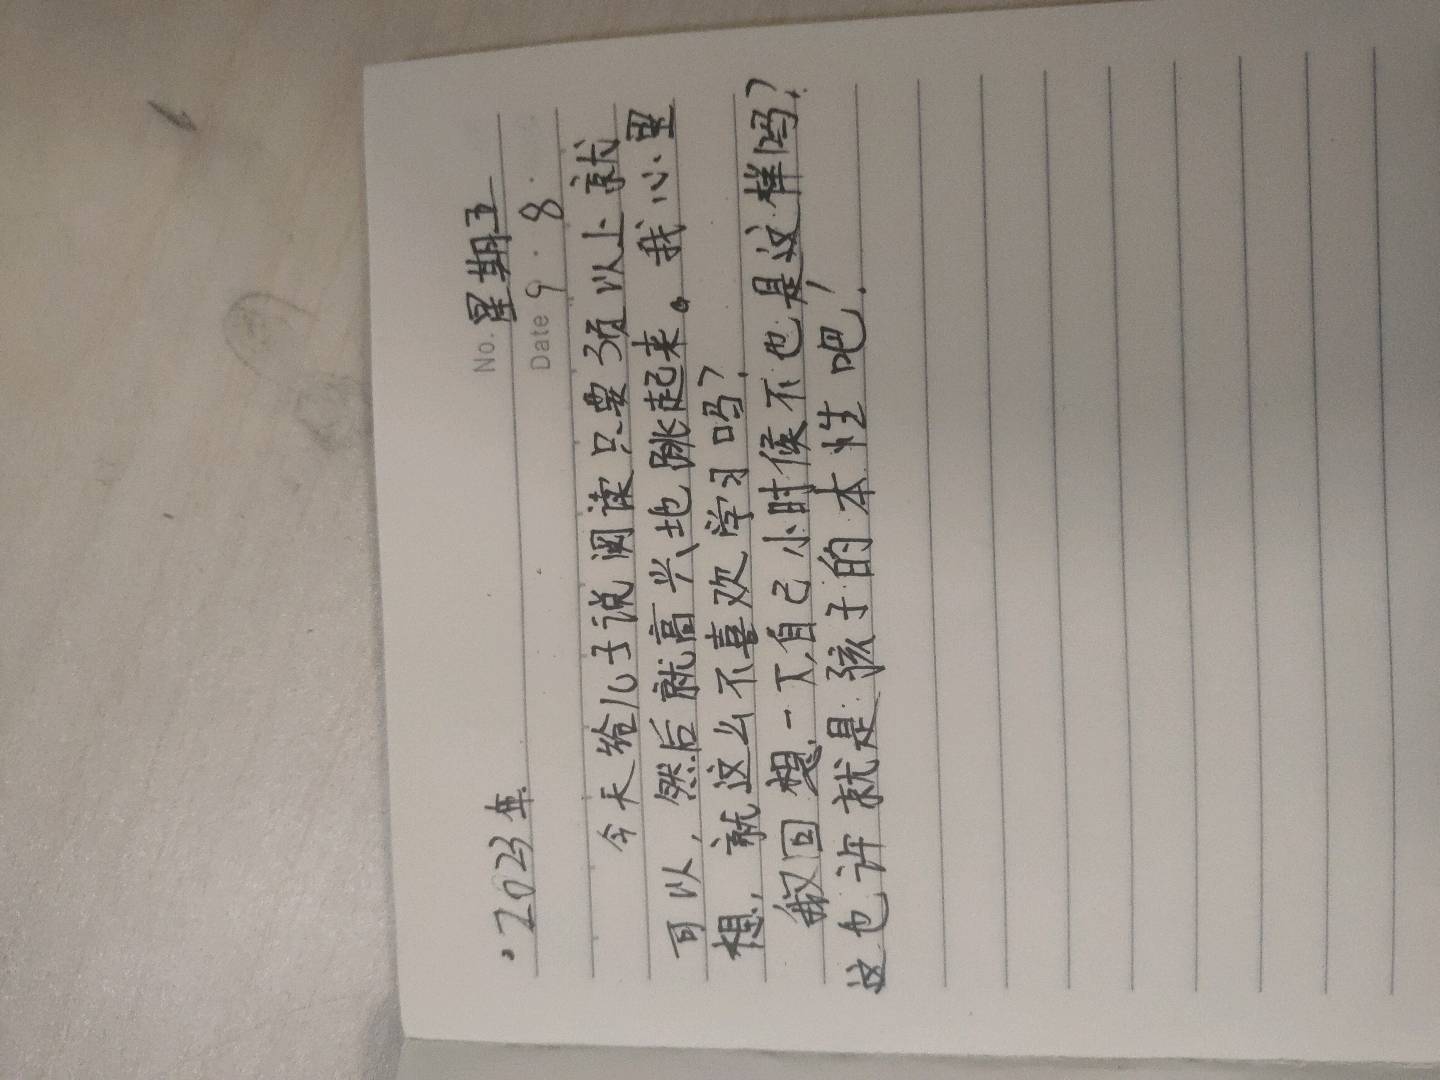 No. 星期五
2023年 Date 9.8.
今天给儿子说阅读只要3页以上就
可以，然后就高兴地跳起来。我心里
想，就这么不喜欢学习吗？
我又回想一下，自己小时候不也是这样吗？
这也许就是孩子的本性吧！